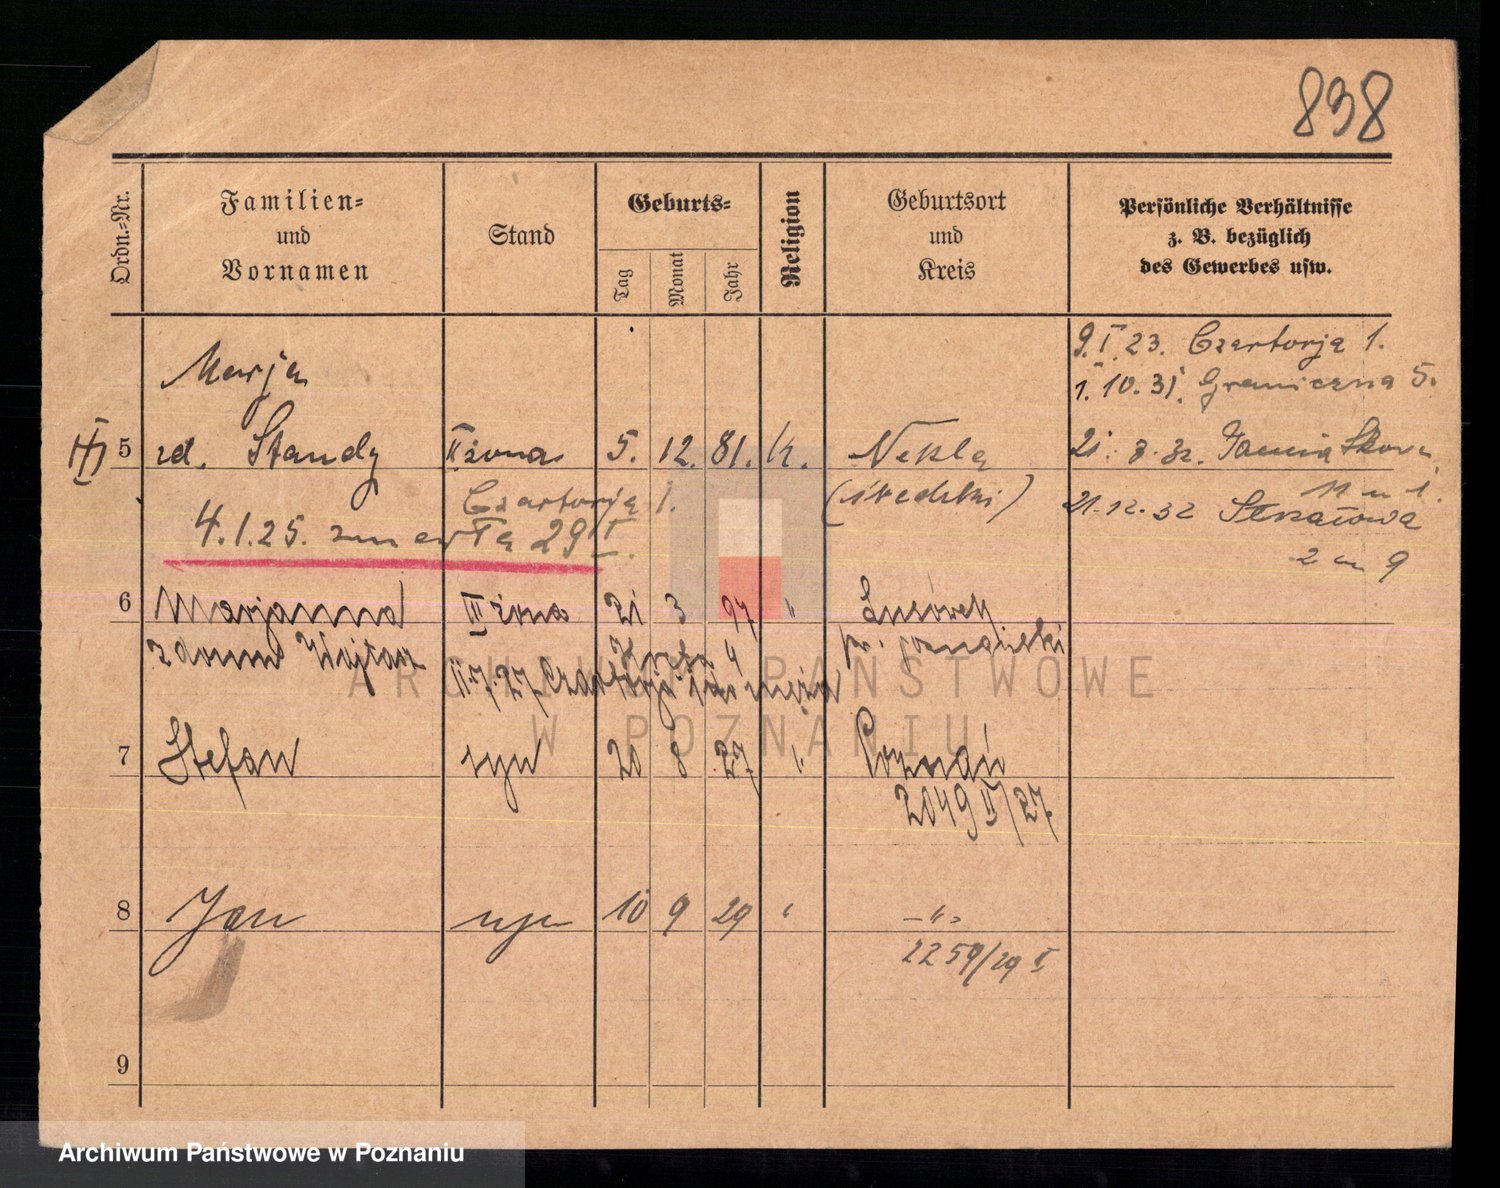 898
Ordn.-Nr.
Familien-
und
Vornamen
Stand
Geburts-
Tag
Monat
Jahr
Religion
Geburtsort
und
Kreis
Persönliche Verhältnisse
z. B. bezüglich
des Gewerbes usw.
9.I.23. Czartorja 1.
Marja
1.10.31. Graniczna 5.
5 zd. Standy II żona 5. 12. 81. k. Nekla
21. 8. 32.
(średzki)
Czartorja 1.
4.1.25. zmarła 29 I.
21.12.32
2 m 9
6 Marjanna III żona 21 3 97 "
11.7.27
7 Stefan syn 20 8 27 " Poznań
2049 II/27
8 Jan syn 10 9 29 " -"-
2259/29 I
9
ARCHIWUM PAŃSTWOWE
W POZNANIU
Archiwum Państwowe w Poznaniu